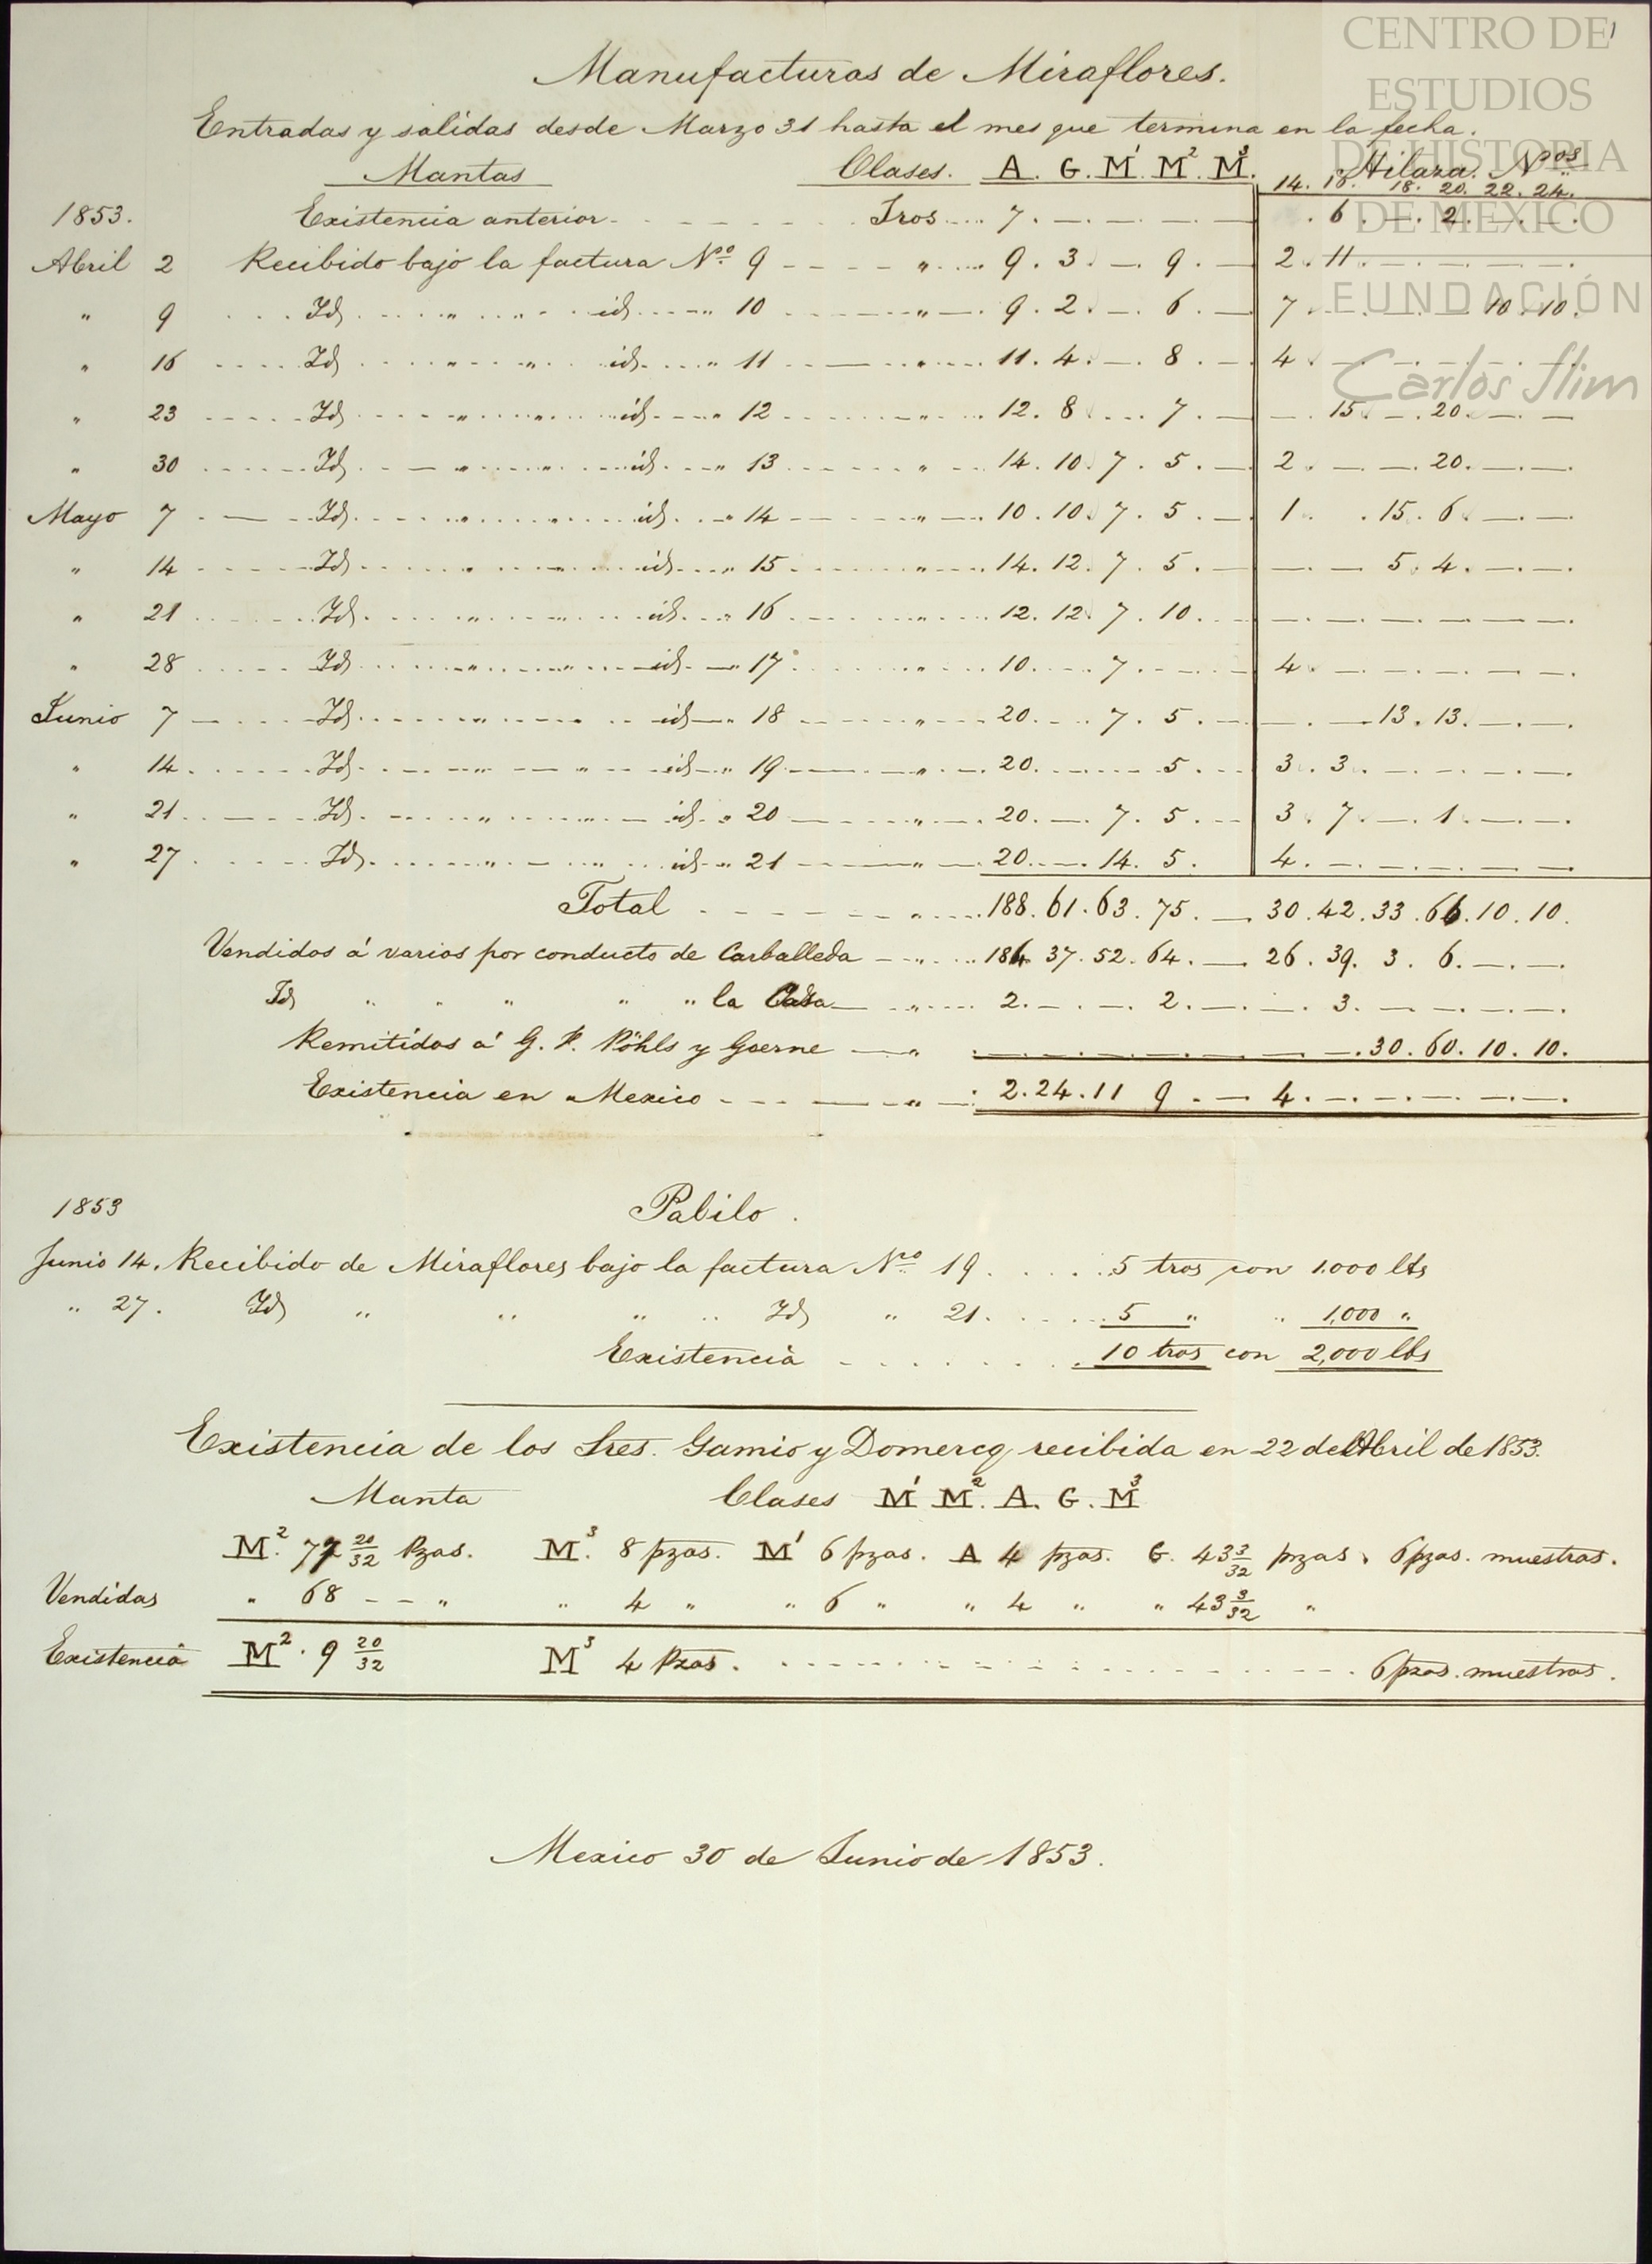 Manufacturas de Miraflores.
Entradas y salidas desde Marzo 31 hasta el mes que termina en la fecha.
Mantas Clases. A. G. M¹ M². M³. Hilaza. Nos
14. 16. 18. 20. 22. 24.
1853. Existencia anterior - - - - - - - Tros .... 7. —. —. —. — . 6. —. 2. —. —.
Abril 2 Recibido bajo la factura No. 9 - - - - " .... 9. 3. —. 9. — 2. 11. —. —. —. —.
" 9 ... Id .... " .... " .. id .... " 10 ...... " —. 9. 2. —. 6. — 7. —. —. —. 10. 10.
" 16 ..... Id .... " .... " .. id .... " 11 ...... " .... 11. 4. —. 8. — 4. —. —. —. —. —.
" 23 ..... Id .... " .... " .. id .... " 12 ...... " .... 12. 8 ... 7. — —. 15. —. 20. —. —
" 30 ..... Id .... " .... " .. id .... " 13 ...... " .... 14. 10. 7. 5. — 2. —. —. 20. —. —.
Mayo 7 .. — .. Id .... " .... " .. id .... " 14 ...... " —. 10. 10. 7. 5. — 1. . 15. 6. —. —.
" 14 ..... Id .... " .... " .. id .... " 15 ...... " .... 14. 12. 7. 5. — —. — 5. 4. —. —.
" 21 ..... Id .... " .... " .. id .... " 16 ...... " .... 12. 12. 7. 10. .. —. —. —. —. —. —.
" 28 ..... Id .... " .... " .. id .... " 17 ...... " .... 10. ... 7. .... — 4. —. —. —. —. —.
Junio 7 — .... Id .... " .... " .. id — " 18 ...... " .... 20. ... 7. 5. — —. — 13. 13. —. —.
" 14 ..... Id .... " .... " .. id — " 19 ...... " —. 20. ..... 5. .. 3. 3. —. —. —. —.
" 21 .. — .. Id .... " .... " .. id .. " 20 ...... " —. 20. —. 7. 5. .. 3. 7. —. 1. —. —.
" 27 ..... Id .... " .... " .. id .. " 21 ...... " — 20. ... 14. 5. 4. —. —. —. —. —
Total - - - - - - - " .... 188. 61. 63. 75. — 30. 42. 33. 66. 10. 10.
Vendidos á varios por conducto de Carballeda — " .... 184. 37. 52. 64. — 26. 39. 3. 6. —. —.
Id " " " " " la Casa — " .... 2. —. —. 2. —. —. 3. —. —. —. —.
Remitidos á G. P. Pöhls y Goerne — " —. —. —. —. —. —. —. 30. 60. 10. 10.
Existencia en Mexico - - - — " —: 2. 24. 11 9. — 4. —. —. —. —. —.
1853 Pabilo.
Junio 14. Recibido de Miraflores bajo la factura Nro. 19 ..... 5 tros con 1.000 lbs
" 27. Id " " " " Id " 21 ..... 5 " " 1,000 "
Existencia ........ 10 tros con 2,000 lbs
Existencia de los Sres. Gamio y Domercq recibida en 22 de Abril de 1853.
Manta Clases M¹ M². A. G. M³
M². 77 20/32 Pzas. M³. 8 pzas. M¹ 6 pzas. A 4 pzas. G. 43 3/32 pzas. 6 pzas. muestras.
Vendidas " 68 - - " " 4 " " 6 " " 4 " " 43 3/32 "
Existencia M². 9 20/32 M³ 4 Pzas. ............... 6 pzas. muestras.
Mexico 30 de Junio de 1853.
CENTRO DE
ESTUDIOS
DE HISTORIA
DE MÉXICO
FUNDACIÓN
Carlos Slim